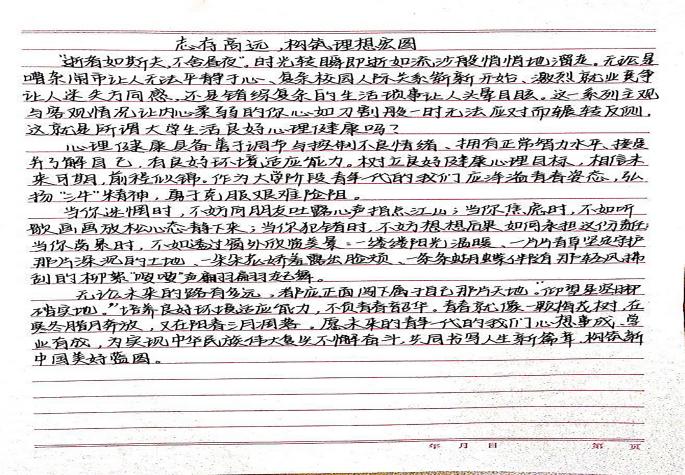 志存高远，构筑理想宏图
"逝者如斯夫，不舍昼夜"。时光转瞬即逝如流沙般悄悄地溜走。无论是
嘈杂闹市让人无法平静于心、复杂校园人际关系崭新开始、激烈就业竞争
让人迷失方向感，还是错综复杂的生活琐事让人头晕目眩。这一系列主观
与客观情况让内心柔弱的你心如刀割般一时无法应对而辗转反侧，
这就是所谓大学生活良好心理健康吗？
心理健康具备善于调节与控制不良情绪、拥有正常智力水平、接受
并了解自己，有良好环境适应能力。树立良好健康心理目标，相信未
来可期，前程似锦。作为大学阶段青年代的我们应洋溢青春姿态，弘
扬"三牛"精神，勇于克服艰难险阻。
当你迷惘时，不妨向朋友吐露心声指点江山；当你焦虑时，不如听
歌画画放松心态静下来；当你犯错时，不妨想想后果如何承担这份责任
当你苦累时，不如透过窗外欣赏美景：一缕缕阳光温暖、一片片青草坚定守护
那片深沉的土地、一朵朵花娇羞露出脸颊、一条条蝴蝶伴随那轻风拂
刮的柳絮"嗖嗖"声翩翩起舞。
无论未来的路有多远，都应正面闯下属于自己那片天地。"仰望星空脚
踏实地。"培养良好环境适应能力，不负青春韶华。青春就像一颗梅花树，在
寒冬腊月奔放，又在阳春三月凋落。愿未来的青年代的我们心想事成、学
业有成，为实现中华民族伟大复兴不懈奋斗，共同书写人生新篇章，构筑新
中国美好蓝图。
年 月 日 第 页